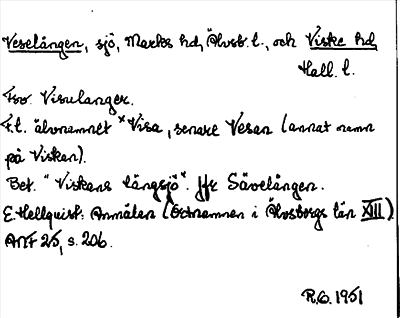 Veselången, sjö, Marks hd, Älvsb. l., och Viske hd,
Hall. l.
Fsv. Visulanger.
F.l. älvnamnet *Visa, senare Vesan (annat namn
på Viskan).
Bet. "Viskans långsjö". Jfr Sävelången.
E. Hellquist: Anmälan (Ortnamnen i Älvsborgs län XIII)
ANF 25, s. 206.
R.O. 1951